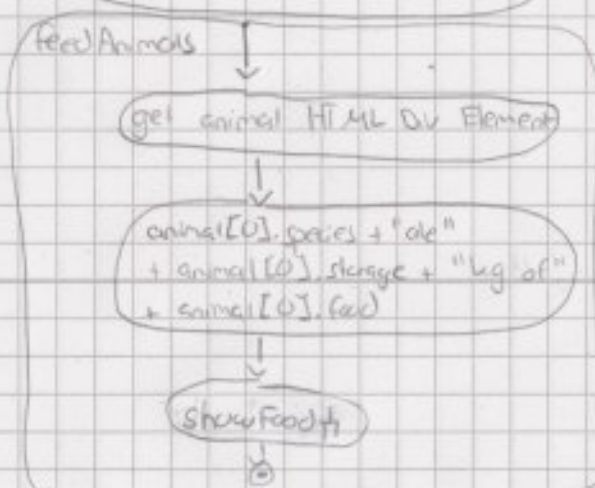 feedAnimals
get animal HTML Div Element
animal[0].species + "ate"
+ animal[0].storage + "kg of"
+ animal[0].food
showFood